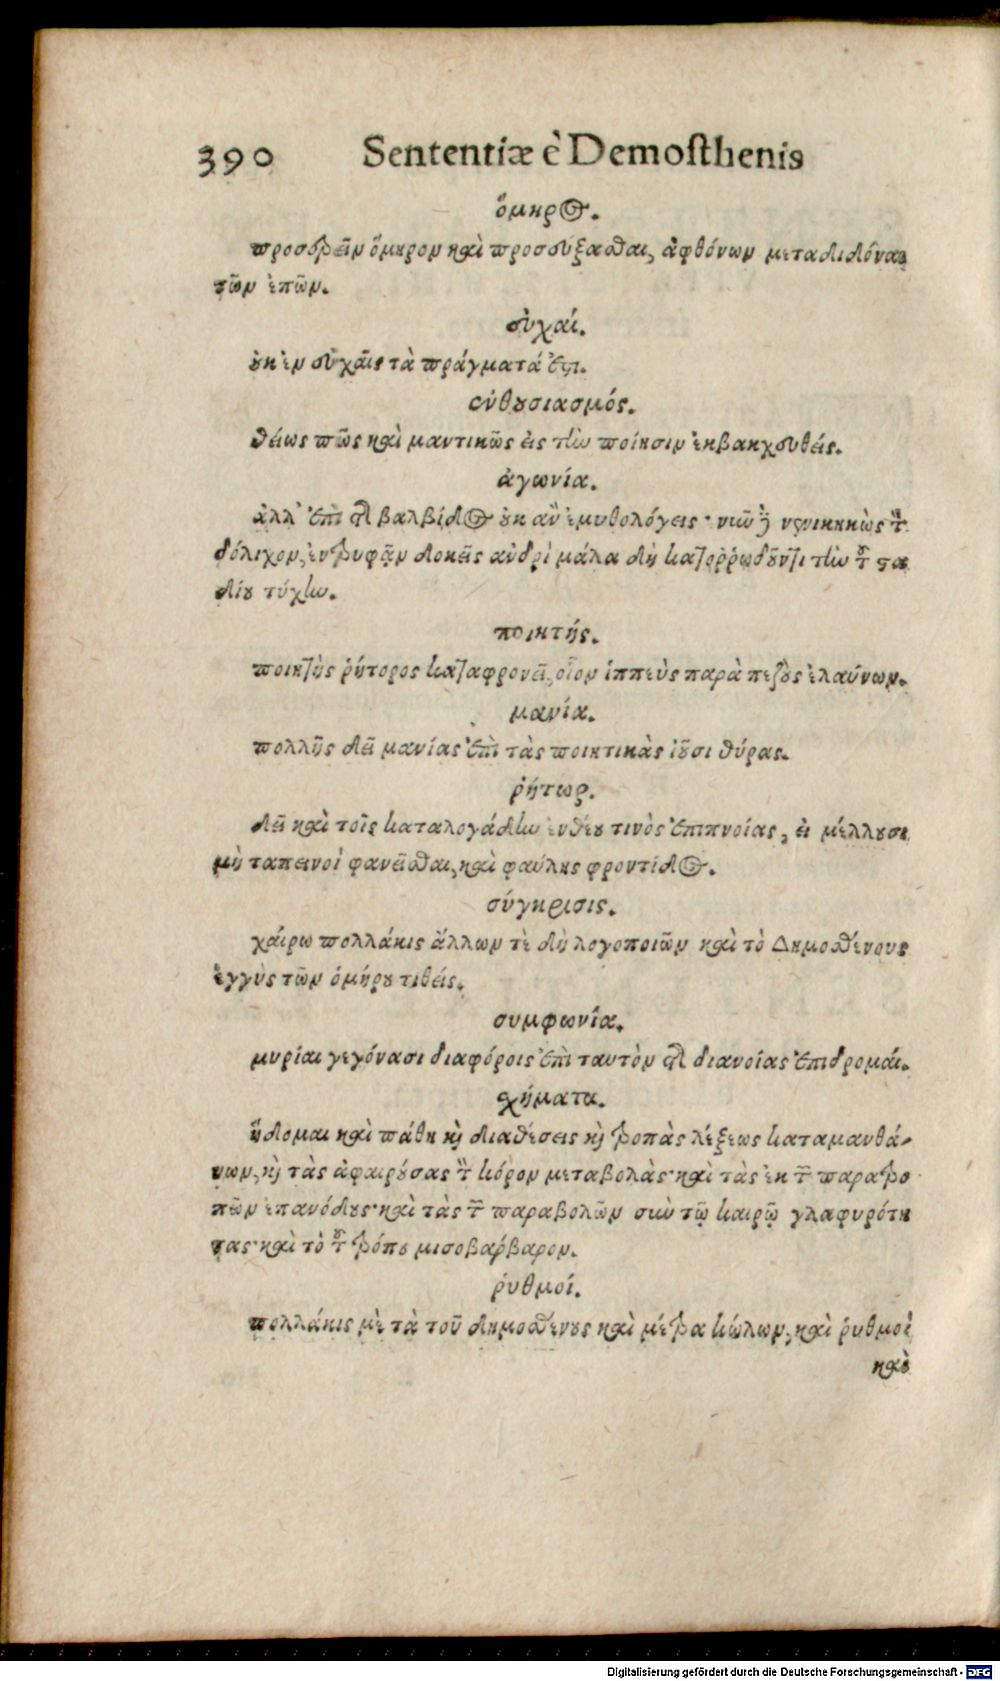 390 Sententiæ è Demosthenis
ὅμηρος.
προσδρεῖν ὅμηρον καὶ προσεύξασθαι, ἀφθόνων μεταδιδόναι
τῶν ἐπῶν.
εὐχαί.
οὐκ ἐν εὐχαῖς τὰ πράγματά ἐστι.
ἐνθουσιασμός.
θείως πῶς καὶ μαντικῶς εἰς τὴν ποίησιν ἐκβακχευθείς.
ἀγωνία.
ἀλλ' ἐπὶ τῆς βαλβίδος οὐκ ἂν ἐμυθολόγεις· νῦν δὲ νενικηκὼς τὸν
δόλιχον, ἐντρυφᾷν δοκεῖς ἀνδρὶ μάλα δὴ κατορρωδοῦντι τὴν τοῦ στα
δίου τύχην.
ποιητής.
ποιητὴς ῥήτορος καταφρονεῖ, οἷον ἱππεὺς παρὰ πεζοὺς ἐλαύνων.
μανία.
πολλῆς δεῖ μανίας ἐπὶ τὰς ποιητικὰς ἰοῦσι θύρας.
ῥήτωρ.
δεῖ καὶ τοῖς καταλογάδην ἐνθέου τινὸς ἐπιπνοίας, εἰ μέλλουσι
μὴ ταπεινοὶ φανεῖσθαι, καὶ φαύλης φροντίδος.
σύγκρισις.
χαίρω πολλάκις ἄλλων τὲ δὴ λογοποιῶν καὶ τὸ Δημοσθένους
ἐγγὺς τῶν ὁμήρου τιθείς.
συμφωνία.
μυρίαι γεγόνασι διαφόροις ἐπὶ ταυτὸν τῆς διανοίας ἐπιδρομαί.
σχήματα.
ἥδομαι καὶ πάθη καὶ διαθέσεις καὶ τροπὰς λέξεως καταμανθά-
νων, καὶ τὰς ἀφαιρούσας τὸν κόρον μεταβολὰς· καὶ τὰς ἐκ τῶν παρατρο
πῶν ἐπανόδους· καὶ τὰς τῶν παραβολῶν σὺν τῷ καιρῷ γλαφυρότη
τας· καὶ τὸ τοῦ τρόπου μισοβάρβαρον.
ῥυθμοί.
πολλάκις μὲ τὰ τοῦ δημοσθένους καὶ μέτρα κώλων, καὶ ῥυθμοὶ
καὶ
Digitalisierung gefördert durch die Deutsche Forschungsgemeinschaft - DFG